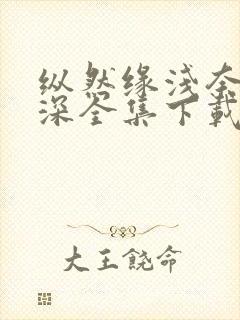 纵然缘浅奈
深全集下载
大王饶命